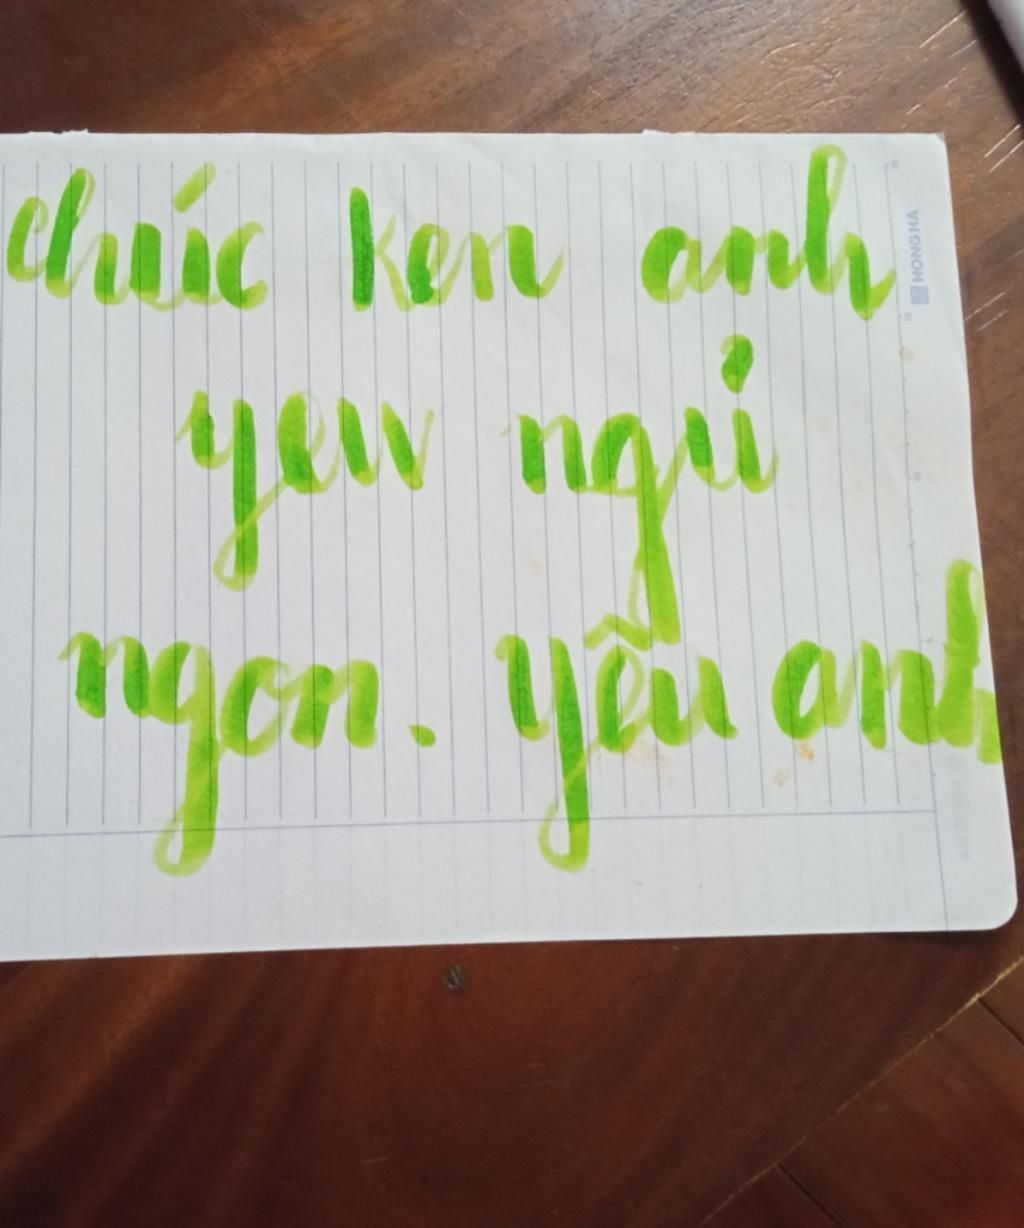 chúc ken anh
yew ngủ
ngon. yêu anh
HONG HA